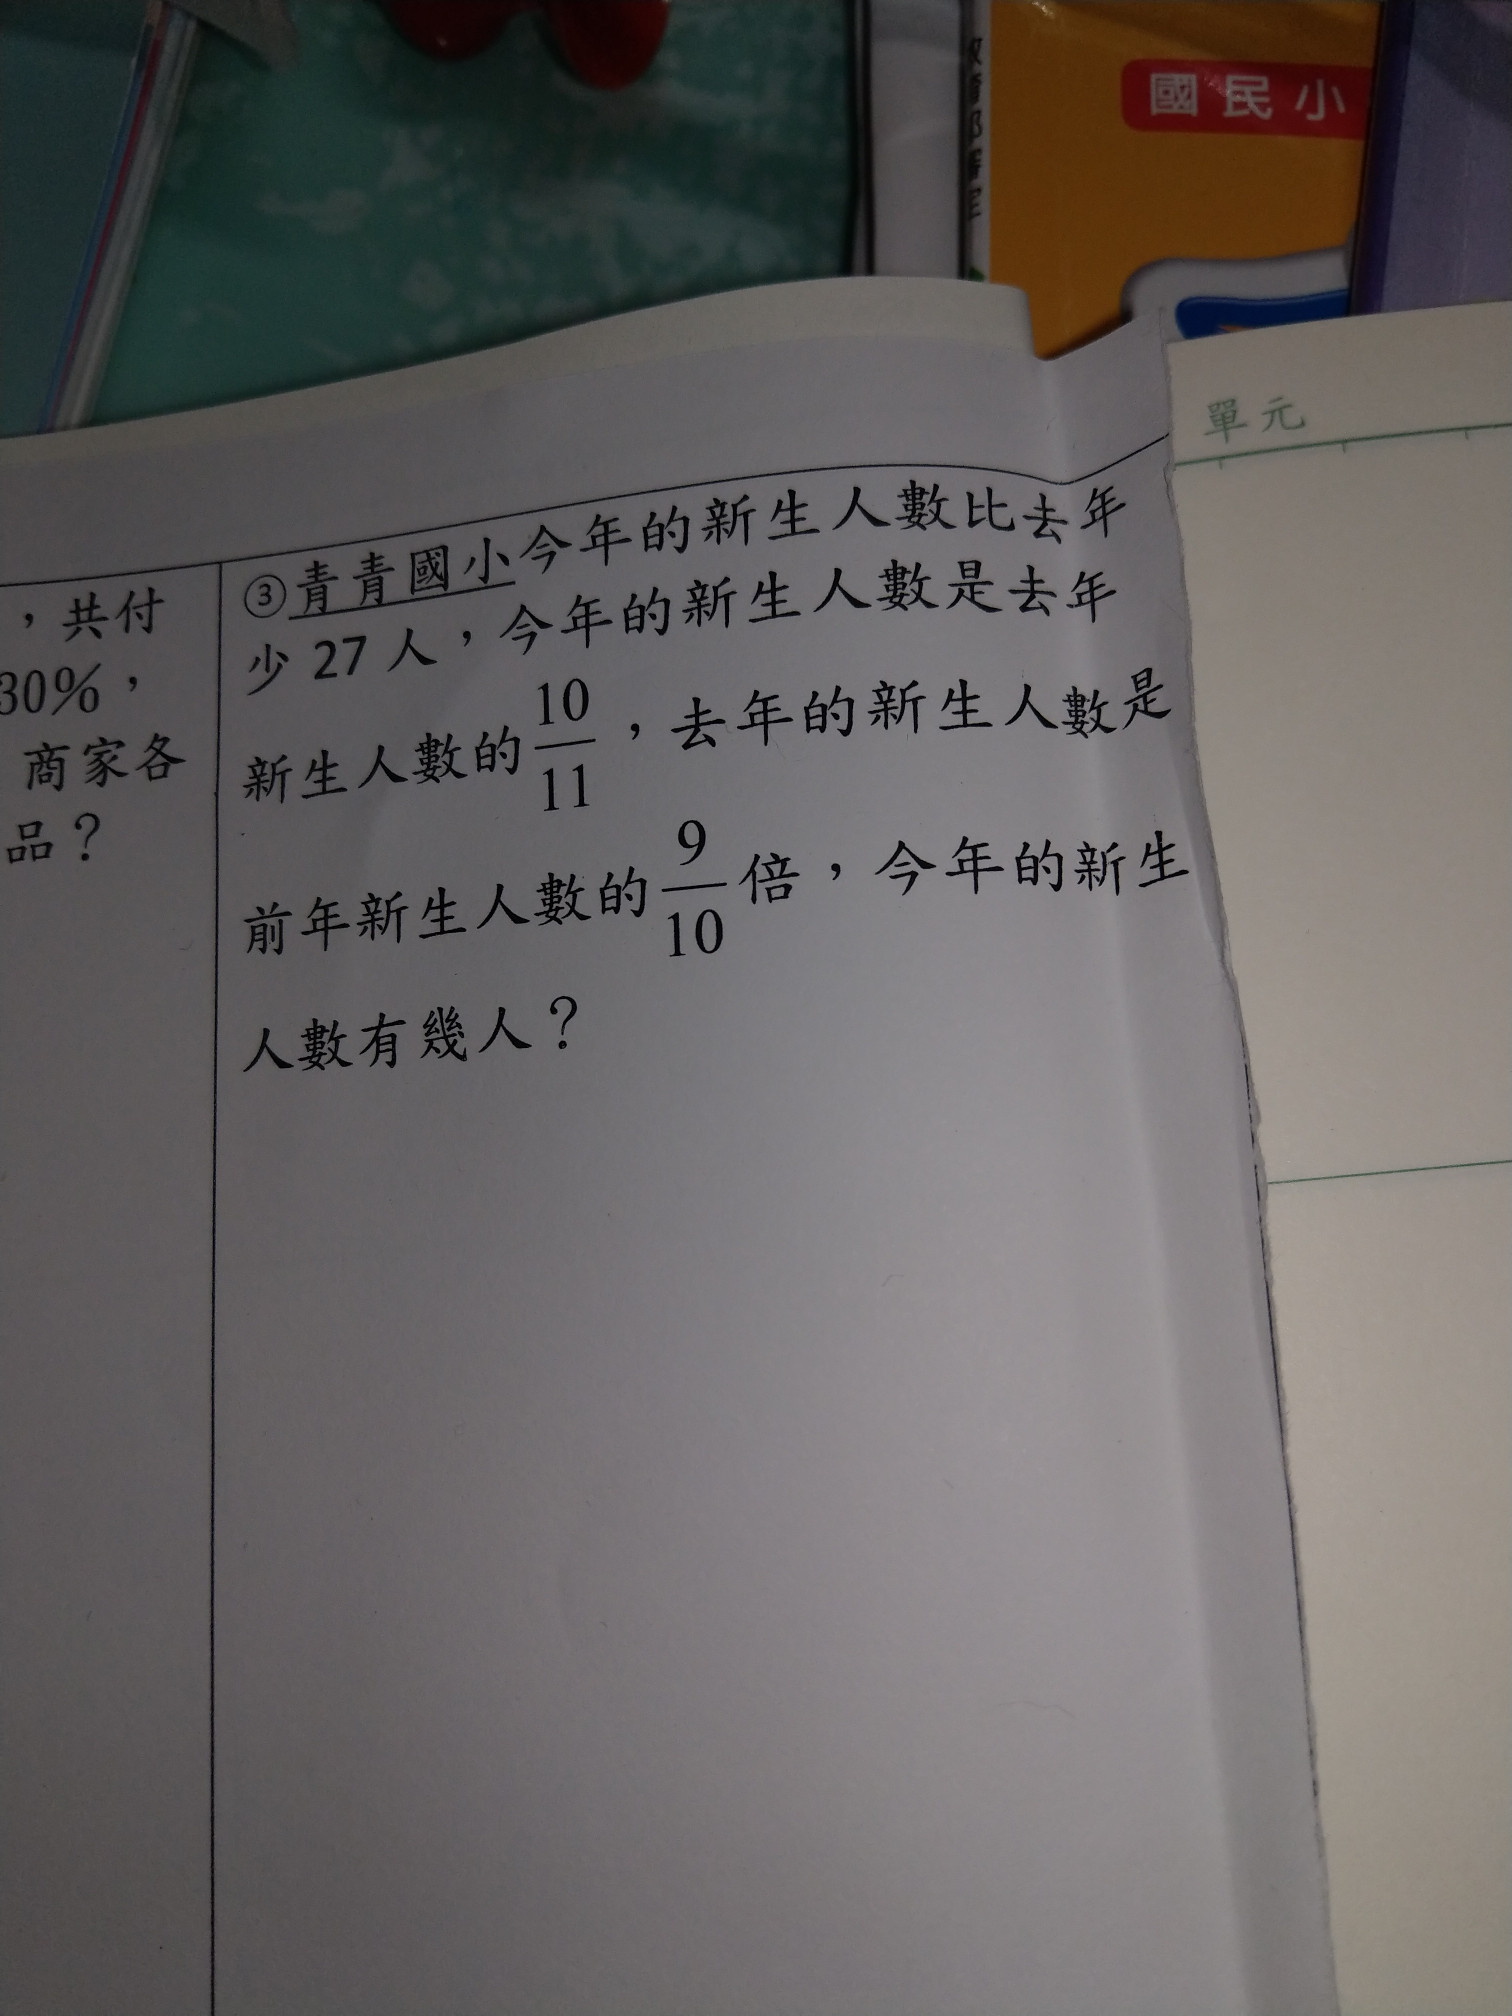 教育部審定
國民小
單元
，共付
30%，
商家各
品？
③青青國小今年的新生人數比去年
少 27 人，今年的新生人數是去年
新生人數的10/11，去年的新生人數是
前年新生人數的9/10倍，今年的新生
人數有幾人？